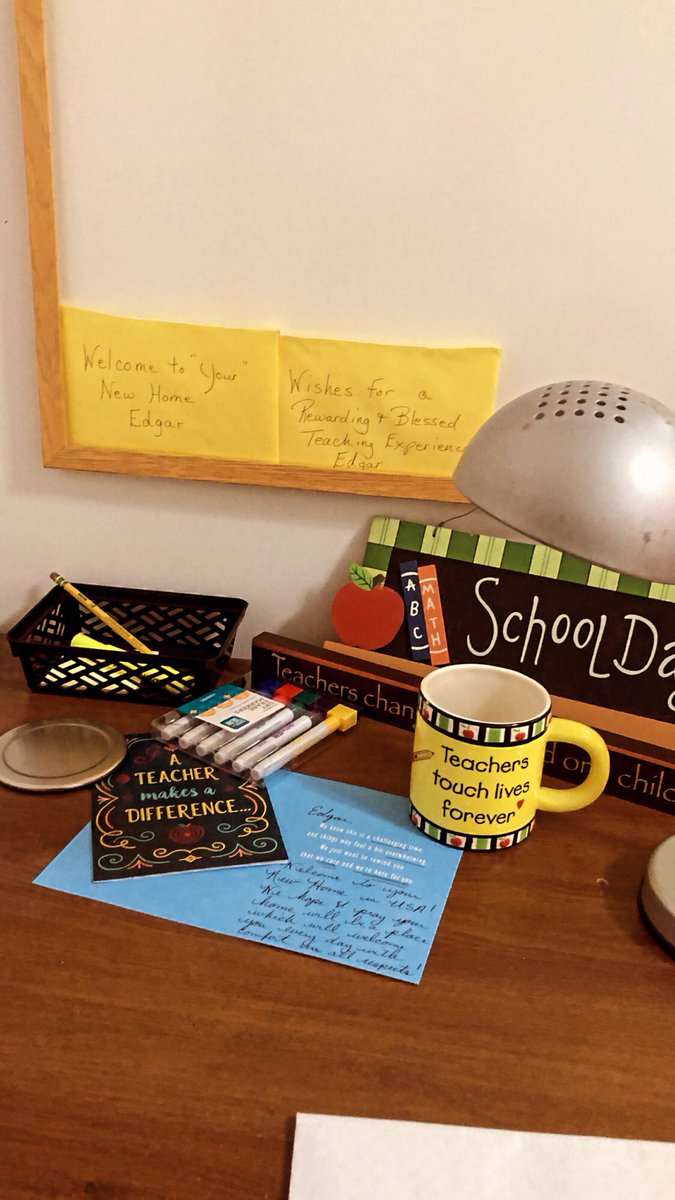 Welcome to "Your"
New Home
Edgar
Wishes for a
Rewarding & Blessed
Teaching Experience
Edgar
A B C
MATH
School Da
Teachers chan
d on
childr
A
TEACHER
makes a
DIFFERENCE...
Teachers
touch lives
forever
Edgar,
We know this is a challenging time,
and things may feel a bit overwhelming.
We just want to remind you
that we care and we're here for you.
Welcome to your
New Home in USA!
We hope & pray your
home will be a place
which will welcome
you every day with
comfort in all respects!